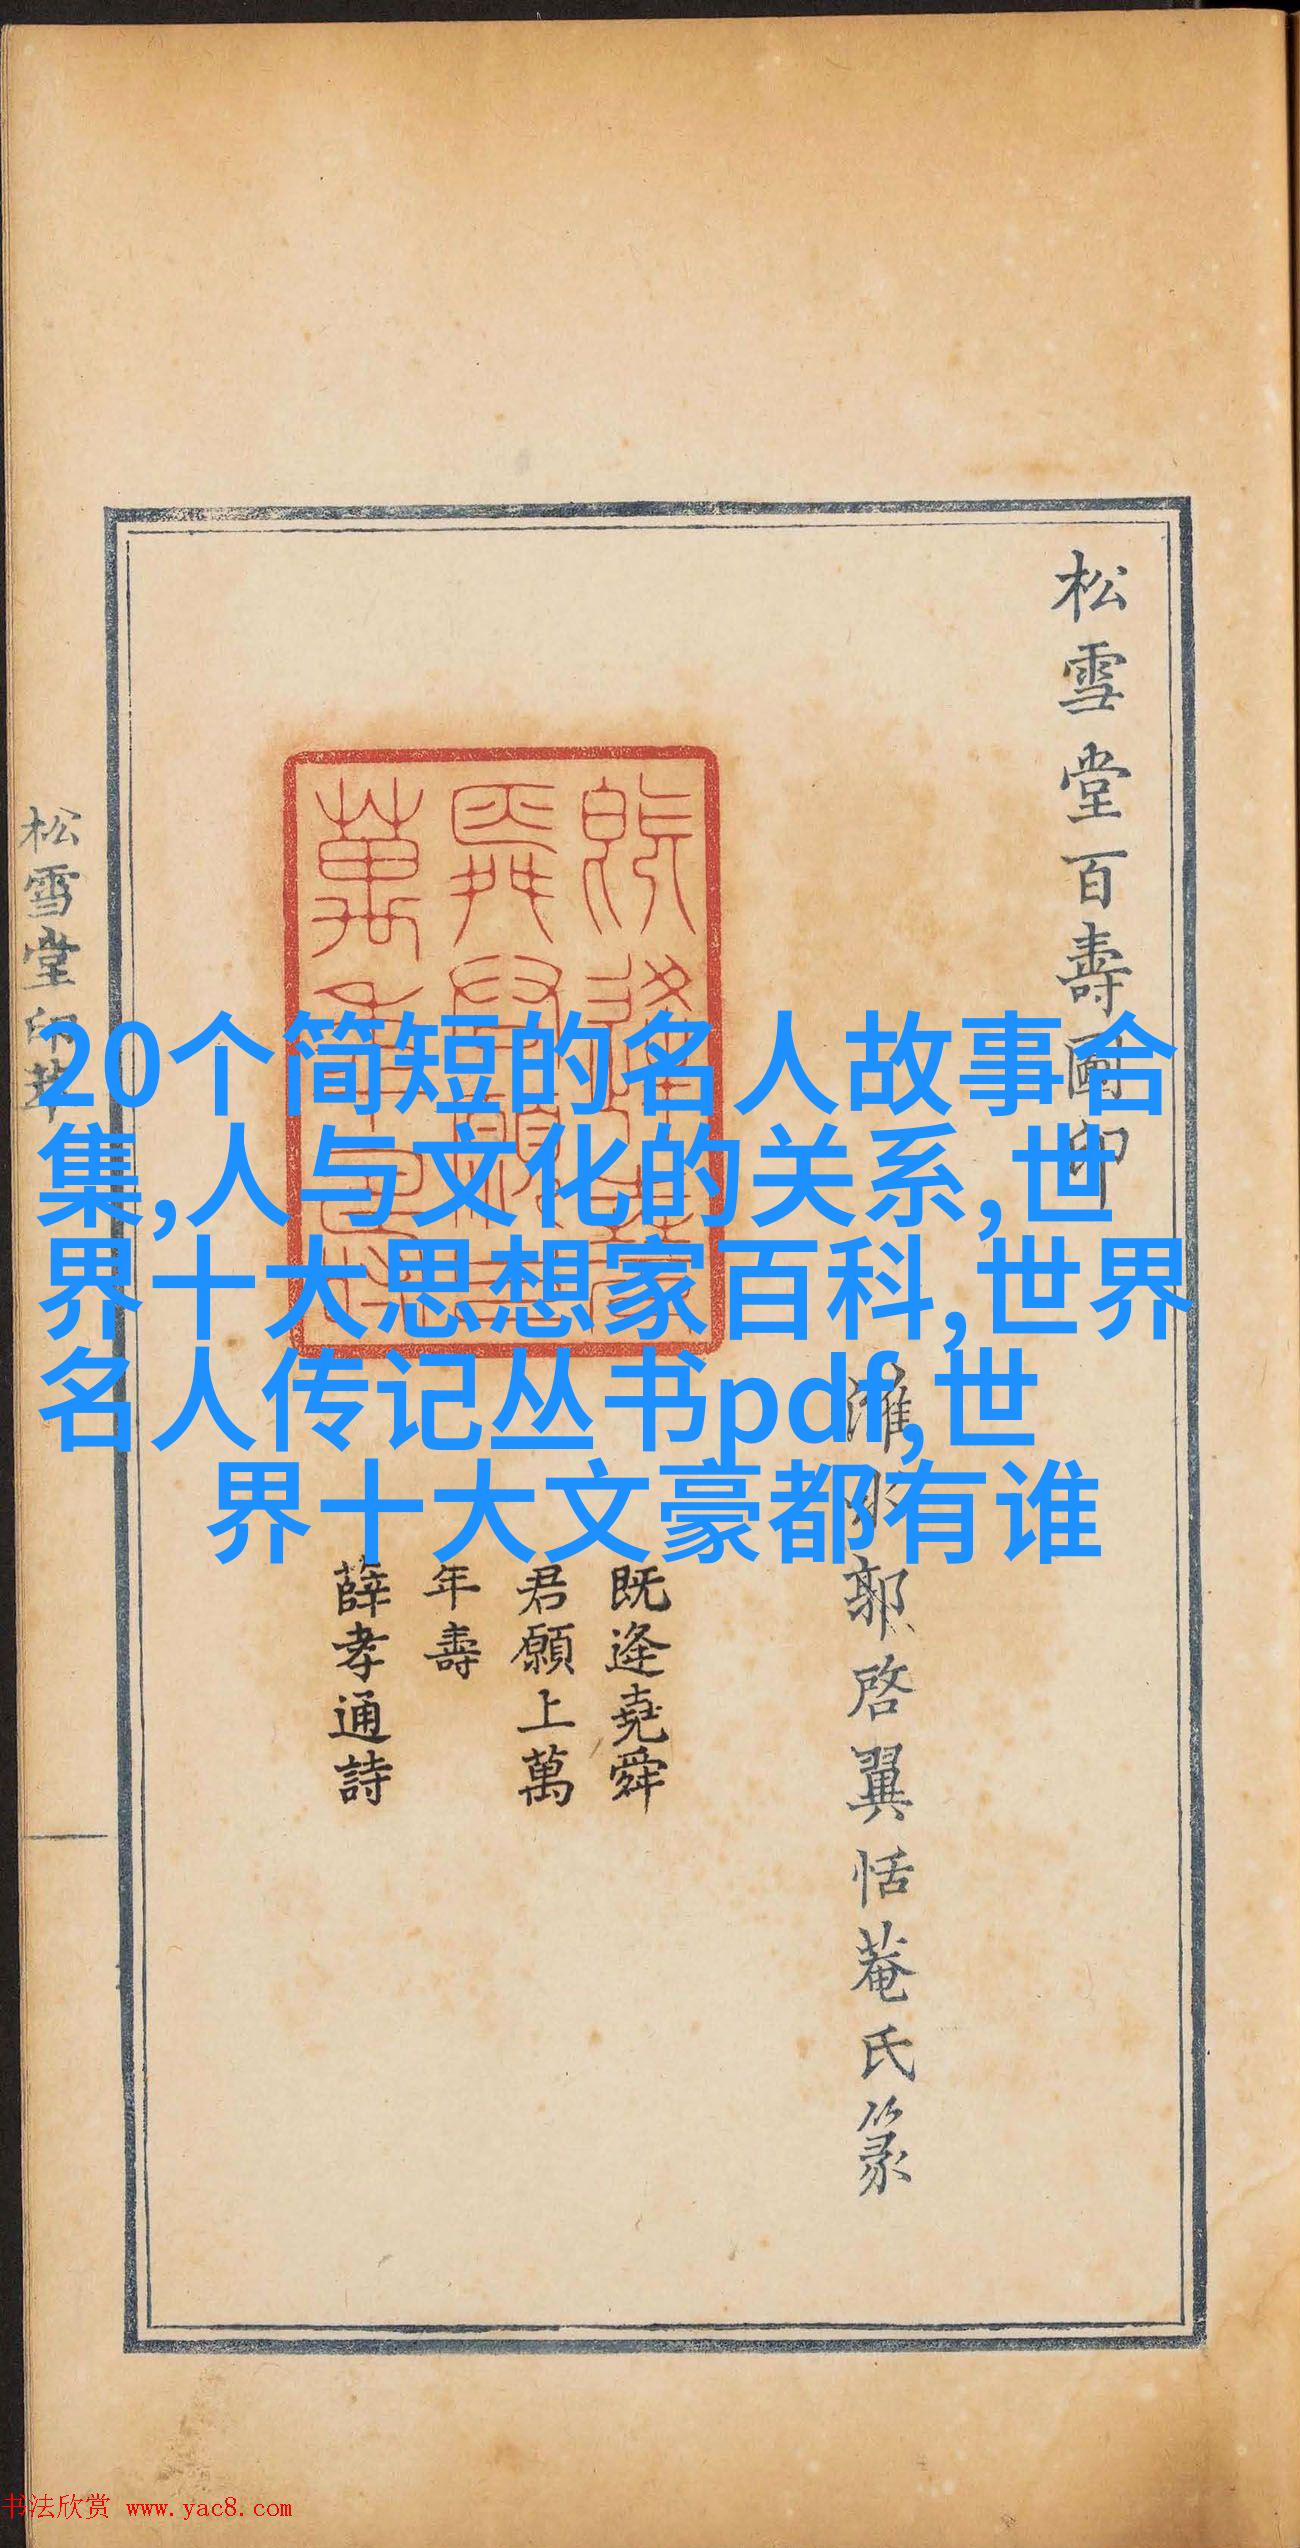 松雪堂百壽圖印
濰水郭啓翼恬菴氏篆
既逢堯舜
君願上萬
年壽
薛孝通詩
松雪堂印萃
20个简短的名人故事合
集,人与文化的关系,世
界十大思想家百科,世界
名人传记丛书pdf,世
界十大文豪都有谁
书法欣赏 www.yac8.com